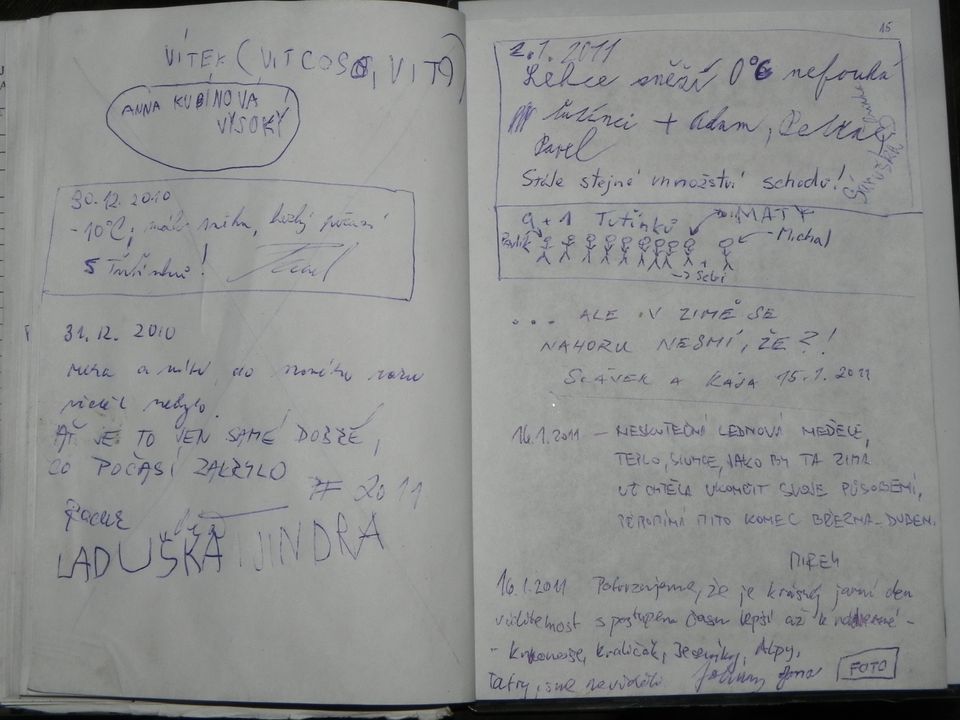 VÍTEK (VITCOS, VÍT)
ANNA KUBÍNOVA
VYSOKÝ
30.12.2010
-10°C, málo sněhu, hezký počasí
5 Tuťínků!
31.12.2010
mlha a mlha, do nového roku
vidět nebylo.
AŤ JE TO JEN SAMÉ DOBRÉ,
CO POČASÍ ZAKRYLO
2011
LADUŠKA JINDRA
15
2.1.2011
Lehce sněží 0°C nefouká
+ Adam,
Pavel
Stále stejné množství schodů!
9 + 1 Tuťínků
MATY
Pavlík
Michal
... ALE V ZIMĚ SE
NAHORU NESMÍ, ŽE?!
SLÁVEK A KÁJA 15.1.2011
16.1.2011 - NESKUTEČNÁ LEDNOVÁ NEDĚLE,
TEPLO, SLUNCE, JAKO BY TA ZIMA
UŽ CHTĚLA UKONČIT SVOJE PŮSOBENÍ,
PŘIPOMÍNÁ MI TO KONEC BŘEZNA-DUBEN.
MIREK
16.1.2011 Potvrzujeme, že je krásný jarní den
viditelnost s postupem času lepší až k nádherné -
- Krkonoše, Kraličák, Jeseníky, Alpy,
Tatry, sme neviděli
FOTO